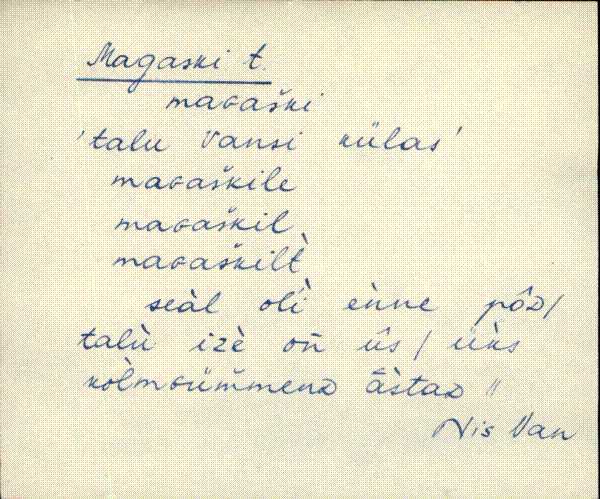 Magaski t.
maɢaški
'talu Vansi külas'
maɢaškile
maɢaškil
maɢaškil̀t
seàl olì ènne pôᴅ/
talù izè oñ ǖs / ùks
kòlmɢüm̄menᴅ āstaᴅ //
Nis Van